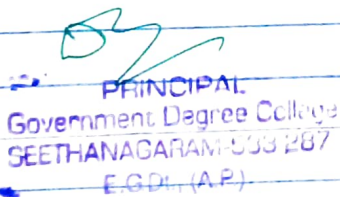 PRINCIPAL
Government Degree College
SEETHANAGARAM-533 287
E.G.Dt., (A.P.)